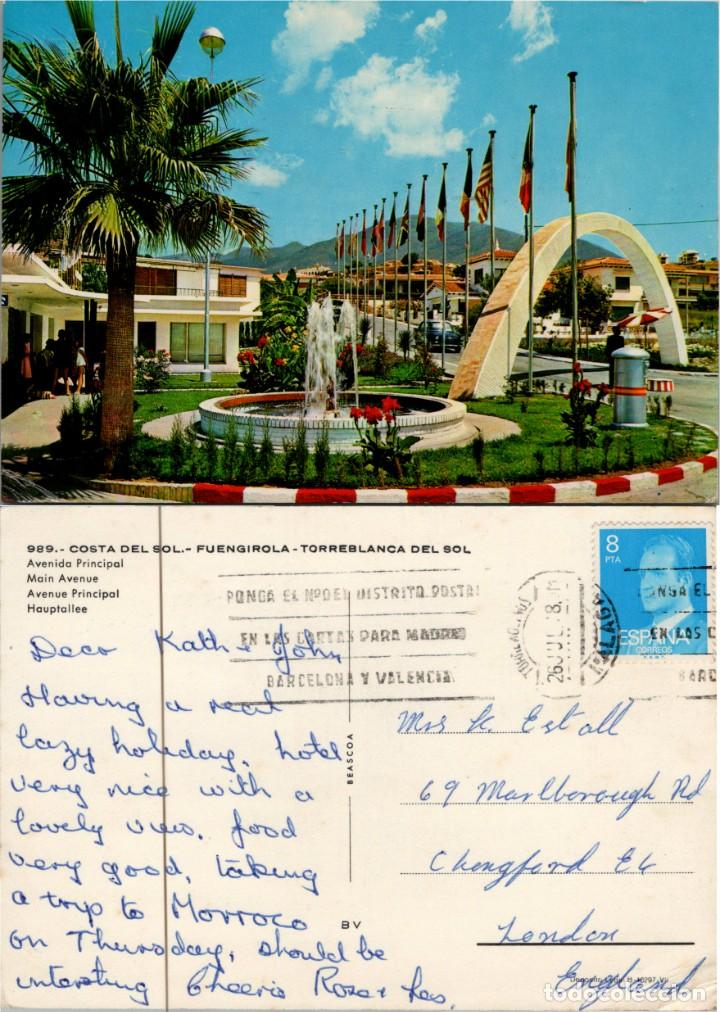 989.- COSTA DEL SOL.- FUENGIROLA - TORREBLANCA DEL SOL
Avenida Principal
Main Avenue
Avenue Principal
Hauptallee
PONGA EL Nº DEL DISTRITO POSTAL
EN LAS CARTAS PARA MADRID
BARCELONA Y VALENCIA
26 JUL
8
PTA
ESPAÑA
CORREOS
PONGA EL
EN LAS C
BARC
Dear Kath & John,
Having a real
lazy holiday, hotel
very nice with a
lovely view. food
very good, taking
a trip to Morroco
on Thursday, should be
intersting Cheerio Rose & Les.
BEASCOA
BV
Mrs K. Estall
69 Marlborough Rd
Chingford E4
London
England
todocoleccion